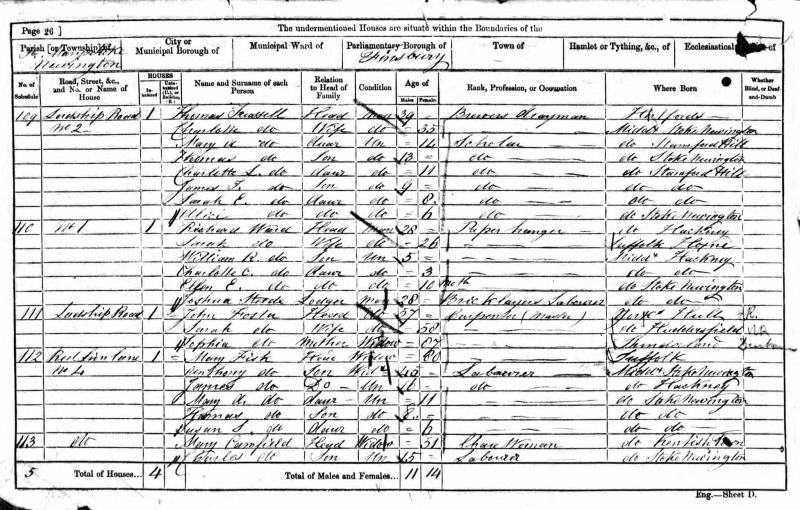 Page 26] The undermentioned Houses are situate within the Boundaries of the
Parish [or Township] of City or Municipal Borough of Municipal Ward of Parliamentary Borough of Town of Hamlet or Tything, &c., of Ecclesiastical
St. Mary Stoke Newington Finsbury
No. of Schedule Road, Street, &c., and No. or Name of House HOUSES Inhabited Uninhabited (U.), or Building (B.) Name and Surname of each Person Relation to Head of Family Condition Age of Males Females Rank, Profession, or Occupation Where Born Whether Blind, or Deaf-and-Dumb
109 Lordship Road 1 Thomas Head Mar 39 Brewers Drayman
No 2 Charlotte do Wife do 35 Middx Stoke Newington
Mary A. do daur Un 14 Scholar do Stamford Hill
Thomas do Son do 13 do do Stoke Newington
Charlotte L. do daur do 11 do do Stamford Hill
James F. do Son do 9 do do do
Sarah E. do daur do 8 do do do
Alice do do do 6 do do Stoke Newington
110 No 1 1 Richard Ward Head Mar 28 Paper hanger do Hackney
Sarah do Wife do 26 Suffolk
William R. do Son Un 5 Middx Hackney
Charlotte C. do daur do 3 do do
Ellen E. do do do 10 Mth do Stoke Newington
Joshua Lodger Mar 28 Bricklayers Labourer do do
111 Lordship Road 1 John Foster Head do 57 Carpenter (Master) Hull
Sarah do Wife do 58 do Huddersfield
Sophia do Mother Widow 87 Sunderland
112 Red Lion Lane 1 Mary Fisk Head Widow 80 Suffolk
No 4 Anthony do Son Widr 45 Labourer Middx Stoke Newington
James do Do Un 16 do do Hackney
Mary A. do daur Un 11 do Stoke Newington
Thomas do Son do 8 do do
Susan S. do daur do 6 do do
113 do Mary Canfield Head Widow 51 Chare Woman do Kentish Town
Charles do Son Un 15 Labourer do Stoke Newington
5 Total of Houses... 4 Total of Males and Females... 11 14
Eng.—Sheet D.